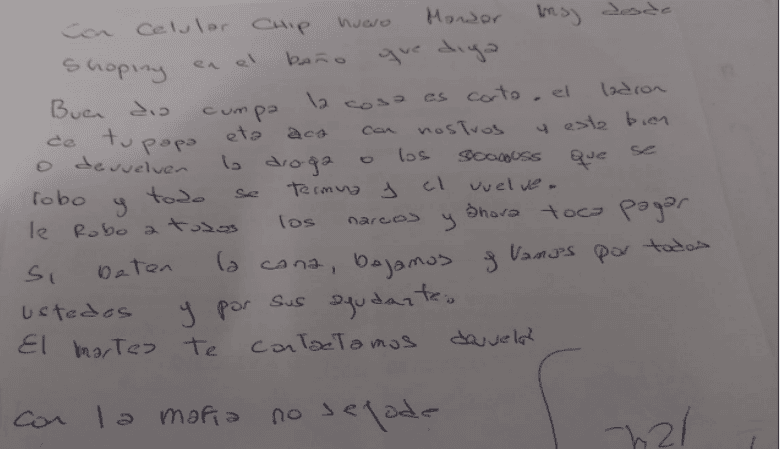 Con celular CHip nuevo Mandar msj desde
Shoping en el baño que diga
Buen dia cumpa la cosa es corta. el ladron
de tu papa eta aca con nostros y esta bien
o devuelven la droga o los que se
robo y todo se termina y el vuelve.
le Robo a todos los narcos y ahora toca pagar
Si baten la cana, bajamos y Vamos por todos
ustedes y por sus ayudante.
El martes te contactamos
con la mafia no se jode